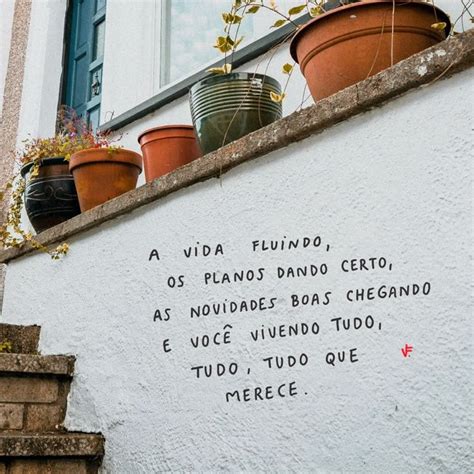 A VIDA FLUINDO,
OS PLANOS DANDO CERTO,
AS NOVIDADES BOAS CHEGANDO
E VOCÊ VIVENDO TUDO,
TUDO, TUDO QUE
MERECE.
VF